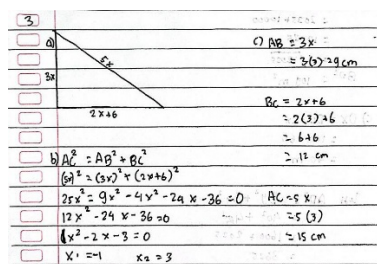 3
a)
5x
3x
2x+6
b) AC² = AB² + BC²
(5x)² = (3x)² + (2x+6)²
25x² = 9x² - 4x² - 24x - 36 = 0
12x² - 24x - 36 = 0
x² - 2x - 3 = 0
x₁ = -1 x₂ = 3
c) AB = 3x
= 3(3) = 9 cm
BC = 2x+6
= 2(3)+6
= 6+6
= 12 cm
AC = 5x
= 5(3)
= 15 cm